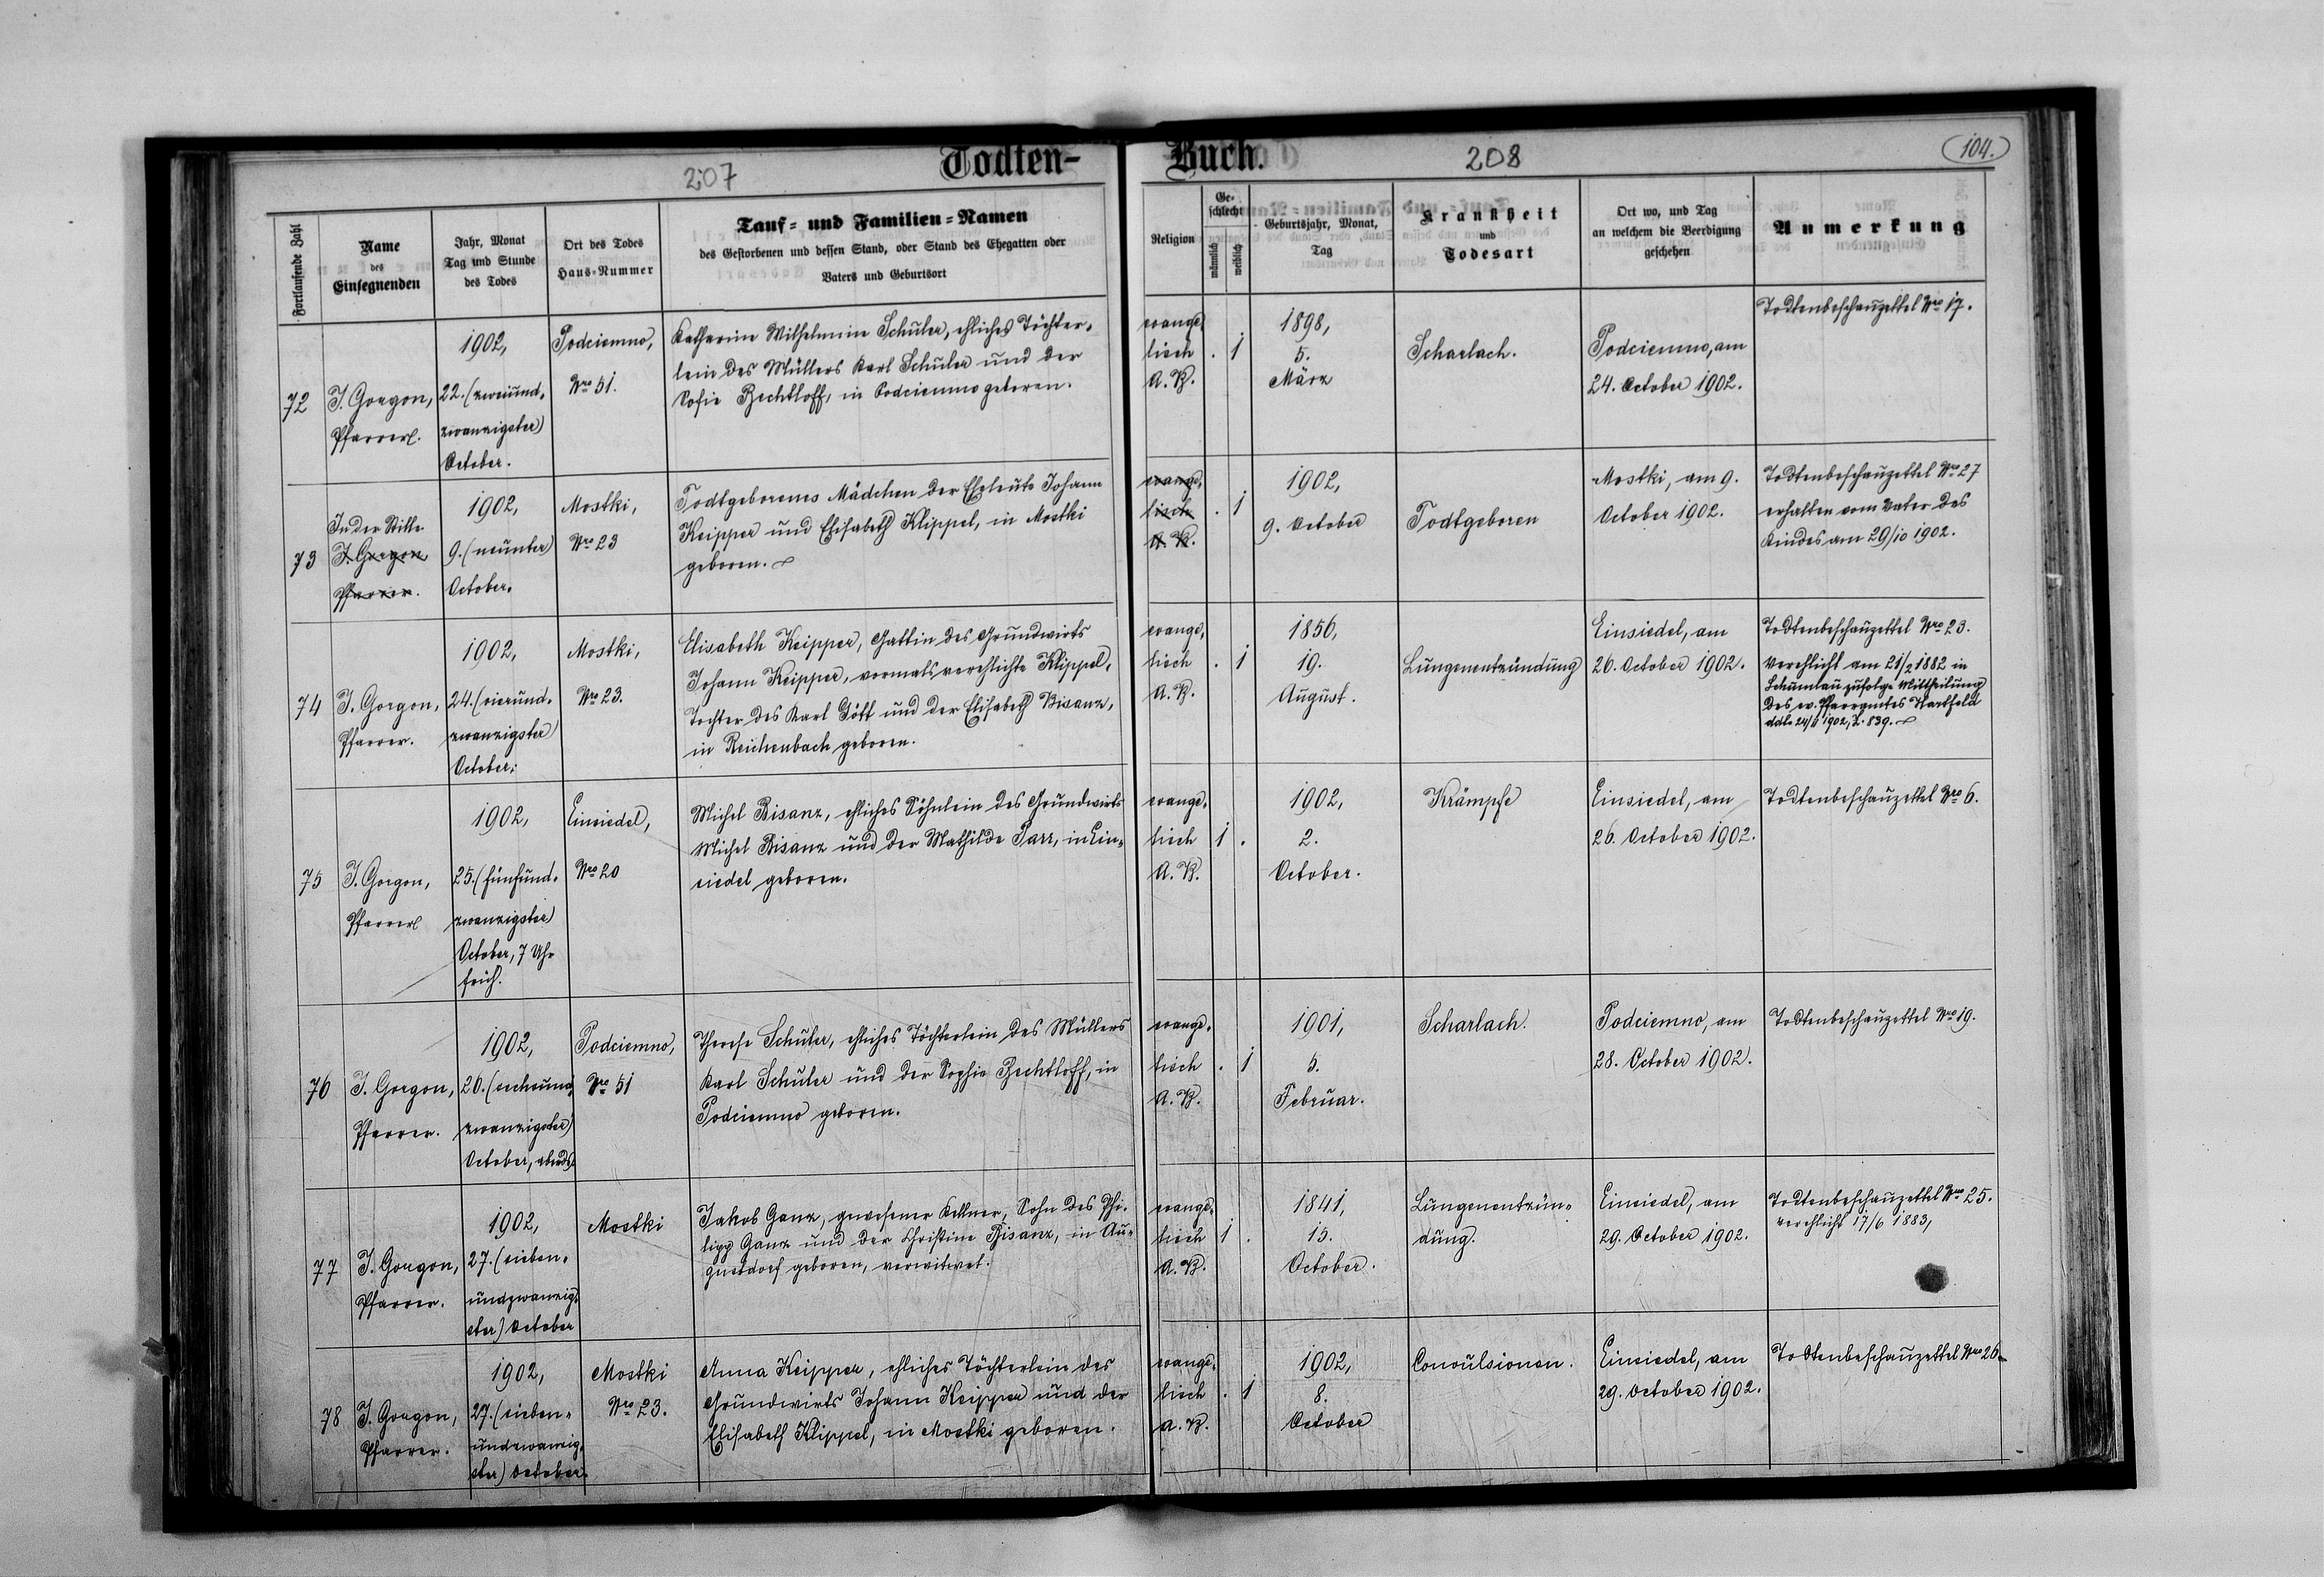 207
Todten-
Buch.
208
104.
Fortlaufende Zahl
Name
des
Einsegnenden
Jahr, Monat
Tag und Stunde
des Todes
Ort des Todes
Haus=Nummer
Tauf= und Familien=Namen
des Gestorbenen und dessen Stand, oder Stand des Ehegatten oder
Vaters und Geburtsort
Religion
Ge-
schlecht
männlich
weiblich
Geburtsjahr, Monat,
Tag
Krankheit
und
Todesart
Ort wo, und Tag
an welchem die Beerdigung
geschehen
Anmerkung
72
J. Gorgon,
Pfarrer.
1902,
22. (zweiund-
zwanzigster)
October.
Podciemno,
Nro 51.
Katharine Wilhelmine Schuler, ehliches Töchter-
lein des Müllers Karl Schuler und der
Sofie Bechtloff, in Podciemno geboren.
evange-
lisch
A. B.
. 1
1898,
5.
März
Scharlach.
Podciemno, am
24. October 1902.
Todtenbeschauzettel Nro 17.
73
In der Stille
J. Gorgon
Pfarrer.
1902,
9. (neunter)
October.
Mostki,
Nro 23
Todtgeborenes Mädchen der Eheleute Johann
Keipper und Elisabeth Klippel, in Mostki
geboren.
evange-
lisch
A. B.
. 1
1902,
9. October
Todtgeboren
Mostki, am 9.
October 1902.
Todtenbeschauzettel Nro 27
erhalten vom Vater des
Kindes am 29/10 1902.
74
J. Gorgon,
Pfarrer.
1902,
24. (vierund-
zwanzigster)
October.
Mostki,
Nro 23.
Elisabeth Keipper, Gattin des Grundwirts
Johann Keipper, vormals verehlichte Klippel,
Tochter des Karl Gött und der Elisabeth Bisanz,
in Reichenbach geboren.
evange-
lisch
A. B.
. 1
1856,
19.
August.
Lungenentzündung
Einsiedel, am
26. October 1902.
Todtenbeschauzettel Nro 23.
Verehlicht am 21/2 1882 in
Schumlau zufolge Mittheilung
des ev. Pfarramtes Hartfeld
ddto 24/11 1902, Z. 839.
75
J. Gorgon,
Pfarrer
1902,
25. (fünfund-
zwanzigster)
October, 7 Uhr
früh.
Einsiedel,
Nro 20
Michel Bisanz, ehliches Söhnlein des Grundwirts
Michel Bisanz und der Mathilde Parr, in Ein-
siedel geboren.
evange-
lisch
A. B.
1 .
1902,
2.
October.
Krämpfe
Einsiedel, am
26. October 1902.
Todtenbeschauzettel Nro 6.
76
J. Gorgon,
Pfarrer.
1902,
26. (sechsund-
zwanzigster)
October, abends
Podciemno,
Nro 51
Therese Schuler, ehliches Töchterlein des Müllers
Karl Schuler und der Sophie Bechtloff, in
Podciemno geboren.
evange-
lisch
A. B.
. 1
1901,
5.
Februar.
Scharlach.
Podciemno, am
28. October 1902.
Todtenbeschauzettel Nro 19.
77
J. Gorgon,
Pfarrer.
1902,
27. (sieben-
undzwanzig-
ster) October
Mostki
Jakob Ganz, gewesener Kellner, Sohn des Phi-
lipp Ganz und der Christine Bisanz, in Au-
gustdorf geboren, verwitwet.
evange-
lisch
A. B.
1 .
1841,
15.
October.
Lungenentzün-
dung.
Einsiedel, am
29. October 1902.
Todtenbeschauzettel Nro 25.
verehlicht 17/6 1883,
78
J. Gorgon,
Pfarrer.
1902,
27. (sieben-
undzwanzig-
ster) October.
Mostki
Nro 23.
Anna Keipper, ehliches Töchterlein des
Grundwirts Johann Keipper und der
Elisabeth Klippel, in Mostki geboren.
evange-
lisch
A. B.
. 1
1902,
8.
October
Convulsionen.
Einsiedel, am
29. October 1902.
Todtenbeschauzettel Nro 26